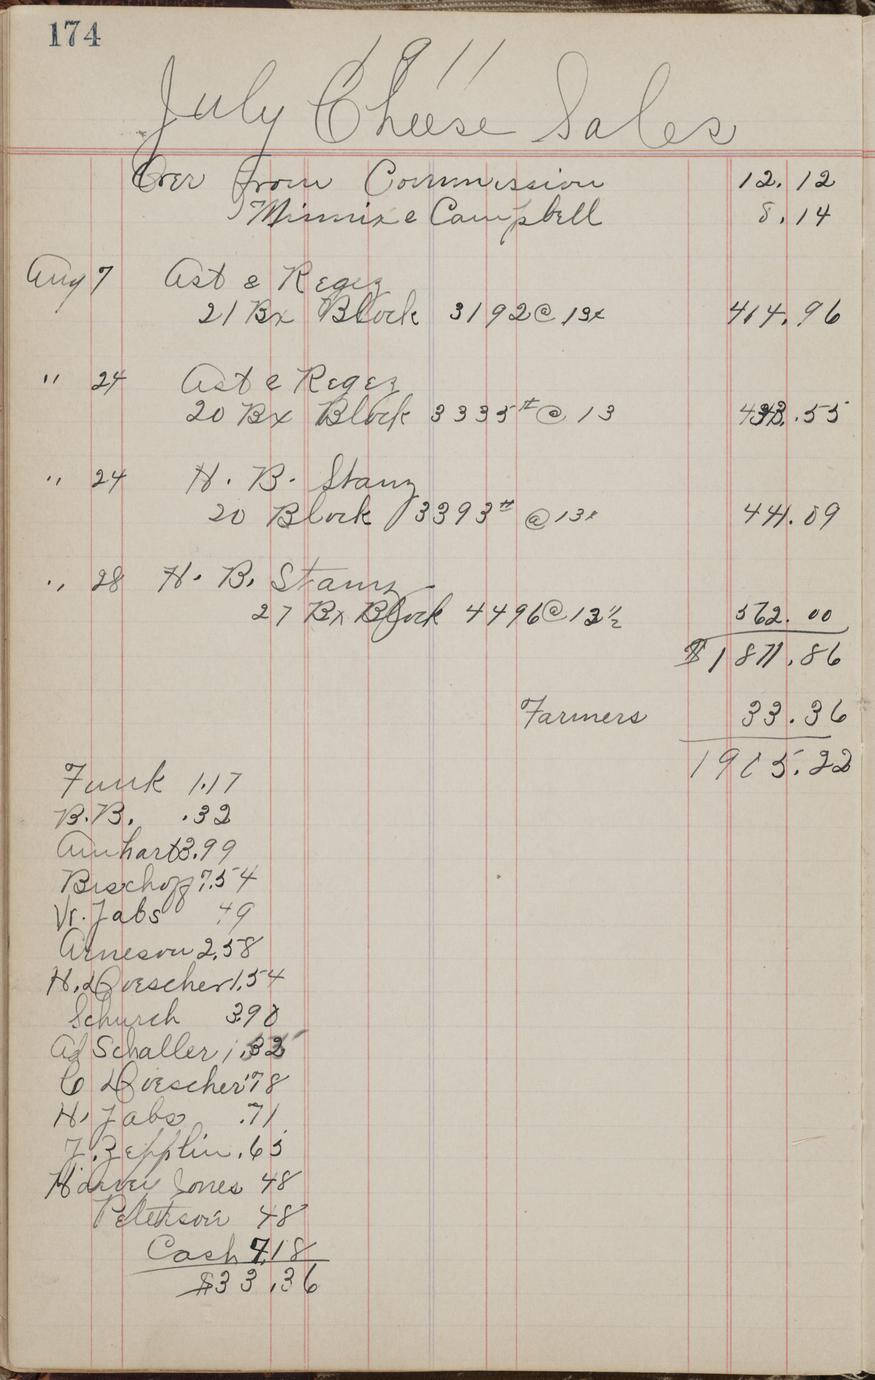 174
1911
July Cheese Sales
Over from Commission 12.12
Minnix & Campbell 8.14
Aug 7 Ast & Regez
21 Bx Block 3192 @ 13¢ 414.96
" 24 Ast & Regez
20 Bx Block 3335# @ 13 433.55
" 24 H. B. Stanz
20 Block 3393# @ 13¢ 441.09
" 28 H. B. Stanz
27 Bx Block 4496 @ 12½ 562.00
$1871.86
Farmers 33.36
1905.22
Funk 1.17
B.B. .32
Amhart 3.99
Bischoff 7.54
Vr. Jabs 49
Arneson 2.58
H. Doescher 1.54
Schurch 3.90
Ad Schaller 1.32
C Doescher .78
H. Jabs .71
J. Zepplin .65
Harvey Jones 48
Peterson 48
Cash 7.18
$33.36